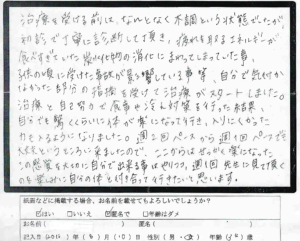 治療を受ける前は、なんとなく不調という状態でしたが、
初診で丁寧に診断して頂き、疲れを取るエネルギーが
食べすぎていた炭水化物の消化にまわってしまっていた事、
子供の頃に受けた 影響している事等、自分で気付か
なかった部分の指摘を受けて治療がスタートしました。
治療と自宅で食事や冷え対策を行った結果、
自分でも驚くくらいに体が楽になって行き、入りにくかった
力も入るようになりました。週2回ペースから週1回ペースで
大丈夫というところに来ましたので、ここからはせっかく楽になった
この感覚を大切に自分で出来る事はやりつつ、週1回先生に見て頂く
のを楽しみに自分の体と付き合って行きたいと思います。
紙面などに掲載する場合、お名前を載せてもよろしいでしょうか?
はい □いいえ 匿名で □年齢はダメ
お名前( ) 匿名( )
記入日 年( 6 )月( 10 )日 性別( 男・女 ) 年齢( )歳